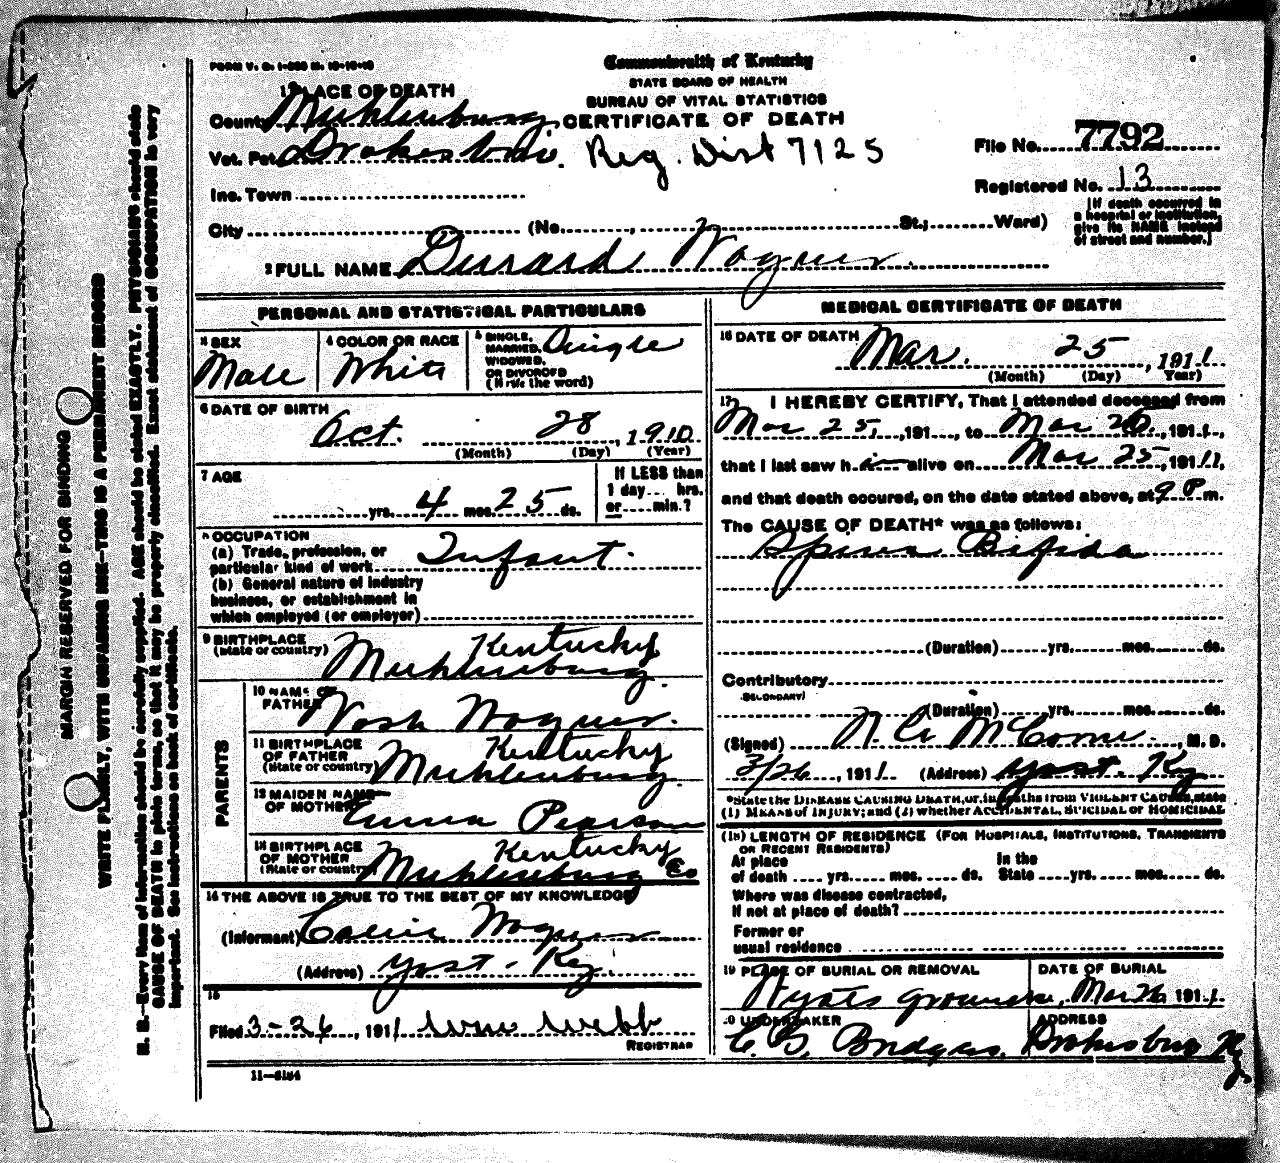 FORM V. S. 1-
Commonwealth of Kentucky
STATE BOARD OF HEALTH
BUREAU OF VITAL STATISTICS
CERTIFICATE OF DEATH
1 PLACE OF DEATH
County Muhlenburg
Vot. Pct. Drakesboro. Reg. Dist 7125
File No. 7792
Inc. Town
Registered No. 13
City (No. , St.; Ward)
[If death occurred in
a hospital or institution,
give its NAME instead
of street and number.]
2 FULL NAME Durard Wagner.
PERSONAL AND STATISTICAL PARTICULARS
3 SEX
Male
4 COLOR OR RACE
White
5 SINGLE,
MARRIED,
WIDOWED,
OR DIVORCED
(Write the word)
Single
6 DATE OF BIRTH
Oct. 28, 1910
(Month) (Day) (Year)
7 AGE
yrs. 4 mos. 25 ds.
If LESS than
1 day.... hrs.
or.... min.?
8 OCCUPATION
(a) Trade, profession, or
particular kind of work Infant.
(b) General nature of industry
business, or establishment in
which employed (or employer)
9 BIRTHPLACE
(State or country) Kentucky
Muhlenburg.
PARENTS
10 NAME OF
FATHER Wash Wagner.
11 BIRTHPLACE
OF FATHER
(State or country) Kentucky
Muhlenburg.
12 MAIDEN NAME
OF MOTHER Emma Pearson
13 BIRTHPLACE
OF MOTHER
(State or country) Kentucky
Muhlenburg Co
14 THE ABOVE IS TRUE TO THE BEST OF MY KNOWLEDGE
(Informant) Wagner
(Address) Yost - Ky.
15
Filed 3-26, 1911 Webb
REGISTRAR
11-
MEDICAL CERTIFICATE OF DEATH
16 DATE OF DEATH
Mar. 25, 1911
(Month) (Day) Year)
17 I HEREBY CERTIFY, That I attended deceased from
Mar 25, ,191..., to Mar 26, 1911,
that I last saw him alive on Mar 25, 1911,
and that death occured, on the date stated above, at 9 P m.
The CAUSE OF DEATH* was as follows:
Spina Bifida
(Duration) yrs. mos. ds.
Contributory
SECONDARY)
(Duration) yrs. mos. ds.
(Signed) , M. D.
3/26, 1911 (Address) Yost. Ky
*State the DISEASE CAUSING DEATH, or, in deaths from VIOLENT CAUSES, state
(1) MEANS of INJURY; and (2) whether ACCIDENTAL, SUICIDAL or HOMICIDAL
(18) LENGTH OF RESIDENCE (FOR HOSPITALS, INSTITUTIONS, TRANSIENTS
OR RECENT RESIDENTS)
At place
of death .... yrs..... mos. .... ds.
In the
State ....yrs..... mos..... ds.
Where was disease contracted,
If not at place of death?
Former or
usual residence
19 PLACE OF BURIAL OR REMOVAL
Wyats
DATE OF BURIAL
Mar 26, 1911
20 UNDERTAKER
ADDRESS
Drakesboro Ky
MARGIN RESERVED FOR BINDING
WRITE PLAINLY, WITH UNFADING INK—THIS IS A PERMANENT RECORD
N. B.—Every item of information should be carefully supplied. AGE should be stated EXACTLY. PHYSICIANS should state
CAUSE OF DEATH in plain terms, so that it may be properly classified. Exact statement of OCCUPATION is very
important. See instructions on back of certificate.